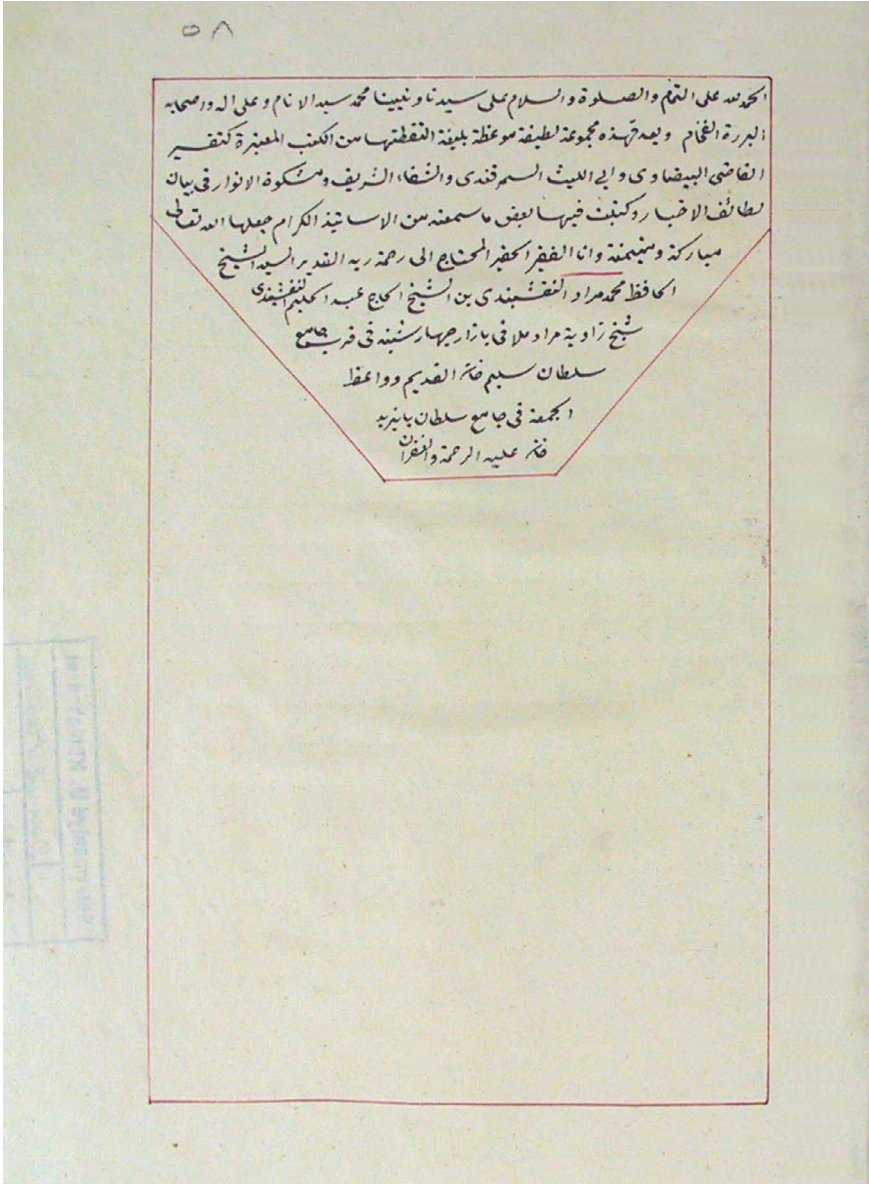 ٥٨
الحمد لله على التمام والصلوة والسلام على سيدنا ونبينا محمد سيد الانام وعلى اله واصحابه
البررة الفخام وبعد فهذه مجموعة لطيفة موعظة بليغة التقطتها من الكتب المعتبرة كتفسير
القاضى البيضاوى وابى الليث السمرقندى والشفاء الشريف ومشكوة الانوار فى بيان
لطائف الاخبار وكتبت فيها بعض ما سمعته من الاساتيذ الكرام جعلها الله تعالى
مباركة ومتيمنة وانا الفقير الحقير المحتاج الى رحمة ربه القدير السيد الشيخ
الحافظ محمد مراد النقشبندى بن الشيخ الحاج عبد الحليم النقشبندى
شيخ زاوية مراد ملا فى بازار چهارشنبه فى قرب جامع
سلطان سليم خان القديم وواعظ
الجمعة فى جامع سلطان بايزيد
خان عليه الرحمة والغفران